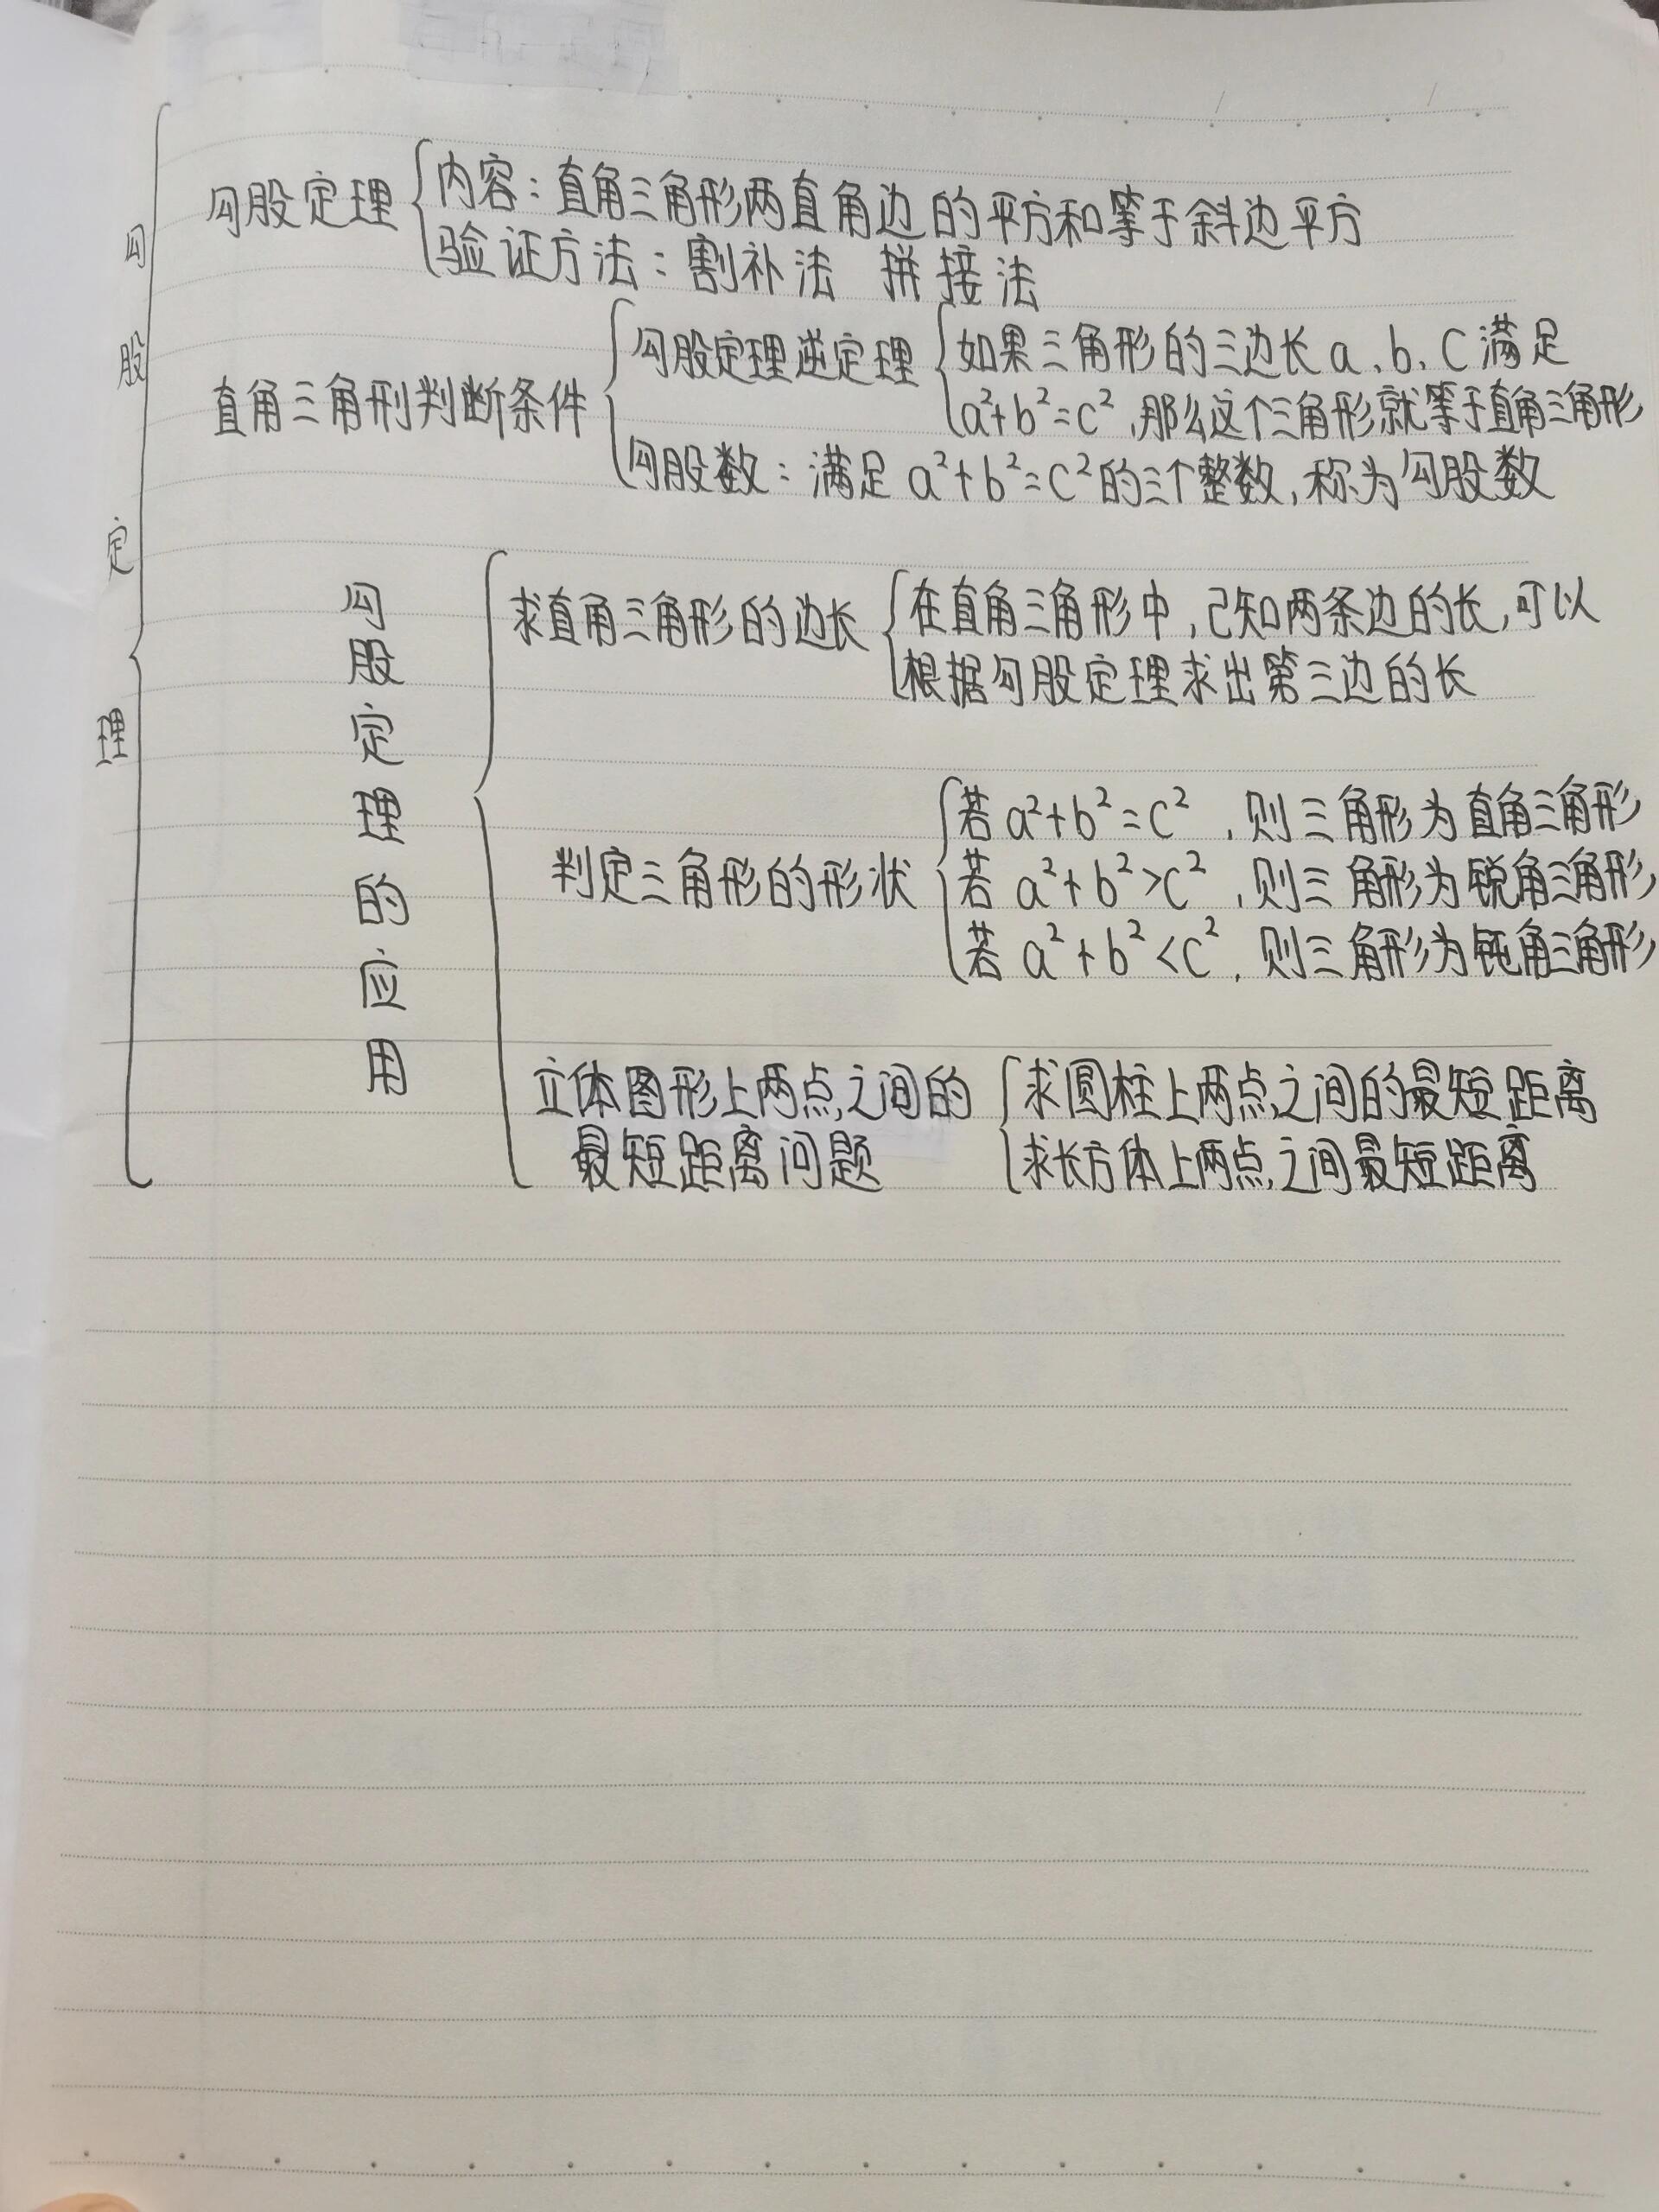 勾股定理
勾股定理
内容：直角三角形两直角边的平方和等于斜边平方
验证方法：割补法 拼接法
直角三角形判断条件
勾股定理逆定理
如果三角形的三边长a、b、c满足
a²+b²=c²,那么这个三角形就等于直角三角形
勾股数：满足a²+b²=c²的三个整数,称为勾股数
勾股定理的应用
求直角三角形的边长
在直角三角形中,已知两条边的长,可以
根据勾股定理求出第三边的长
判定三角形的形状
若a²+b²=c²,则三角形为直角三角形
若a²+b²>c²,则三角形为锐角三角形
若a²+b²<c²,则三角形为钝角三角形
立体图形上两点之间的
最短距离问题
求圆柱上两点之间的最短距离
求长方体上两点之间最短距离